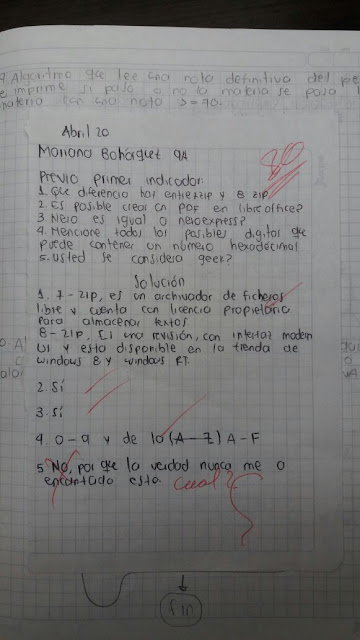 Algoritmo que lee una nota definitiva del
e imprime si paso o no la materia se pasa
materia con una nota >= 70.
Abril 20
Mariana Bohórquez 9A
80
Previo primer indicador:
1. Que diferencia hay entre 7zip y 8 zip
2. Es posible crear un PDF en libreoffice?
3. Nero es igual a neroexpress?
4. Mencione todos los posibles digitos que
puede contener un número hexadecimal
5. Usted se considera geek?
Solución
1. 7-zip, es un archivador de ficheros
libre y cuenta con licencia propietaria
para almacenar textos
8-zip, El una revisión, con interfaz modern
UI y esta disponible en la tienda de
windows 8 y windows RT.
2. Sí
3. Sí
4. 0-9 y de la (A-Z) A-F
5. No, por que la verdad nunca me a
encantado esta. Cual?
fin